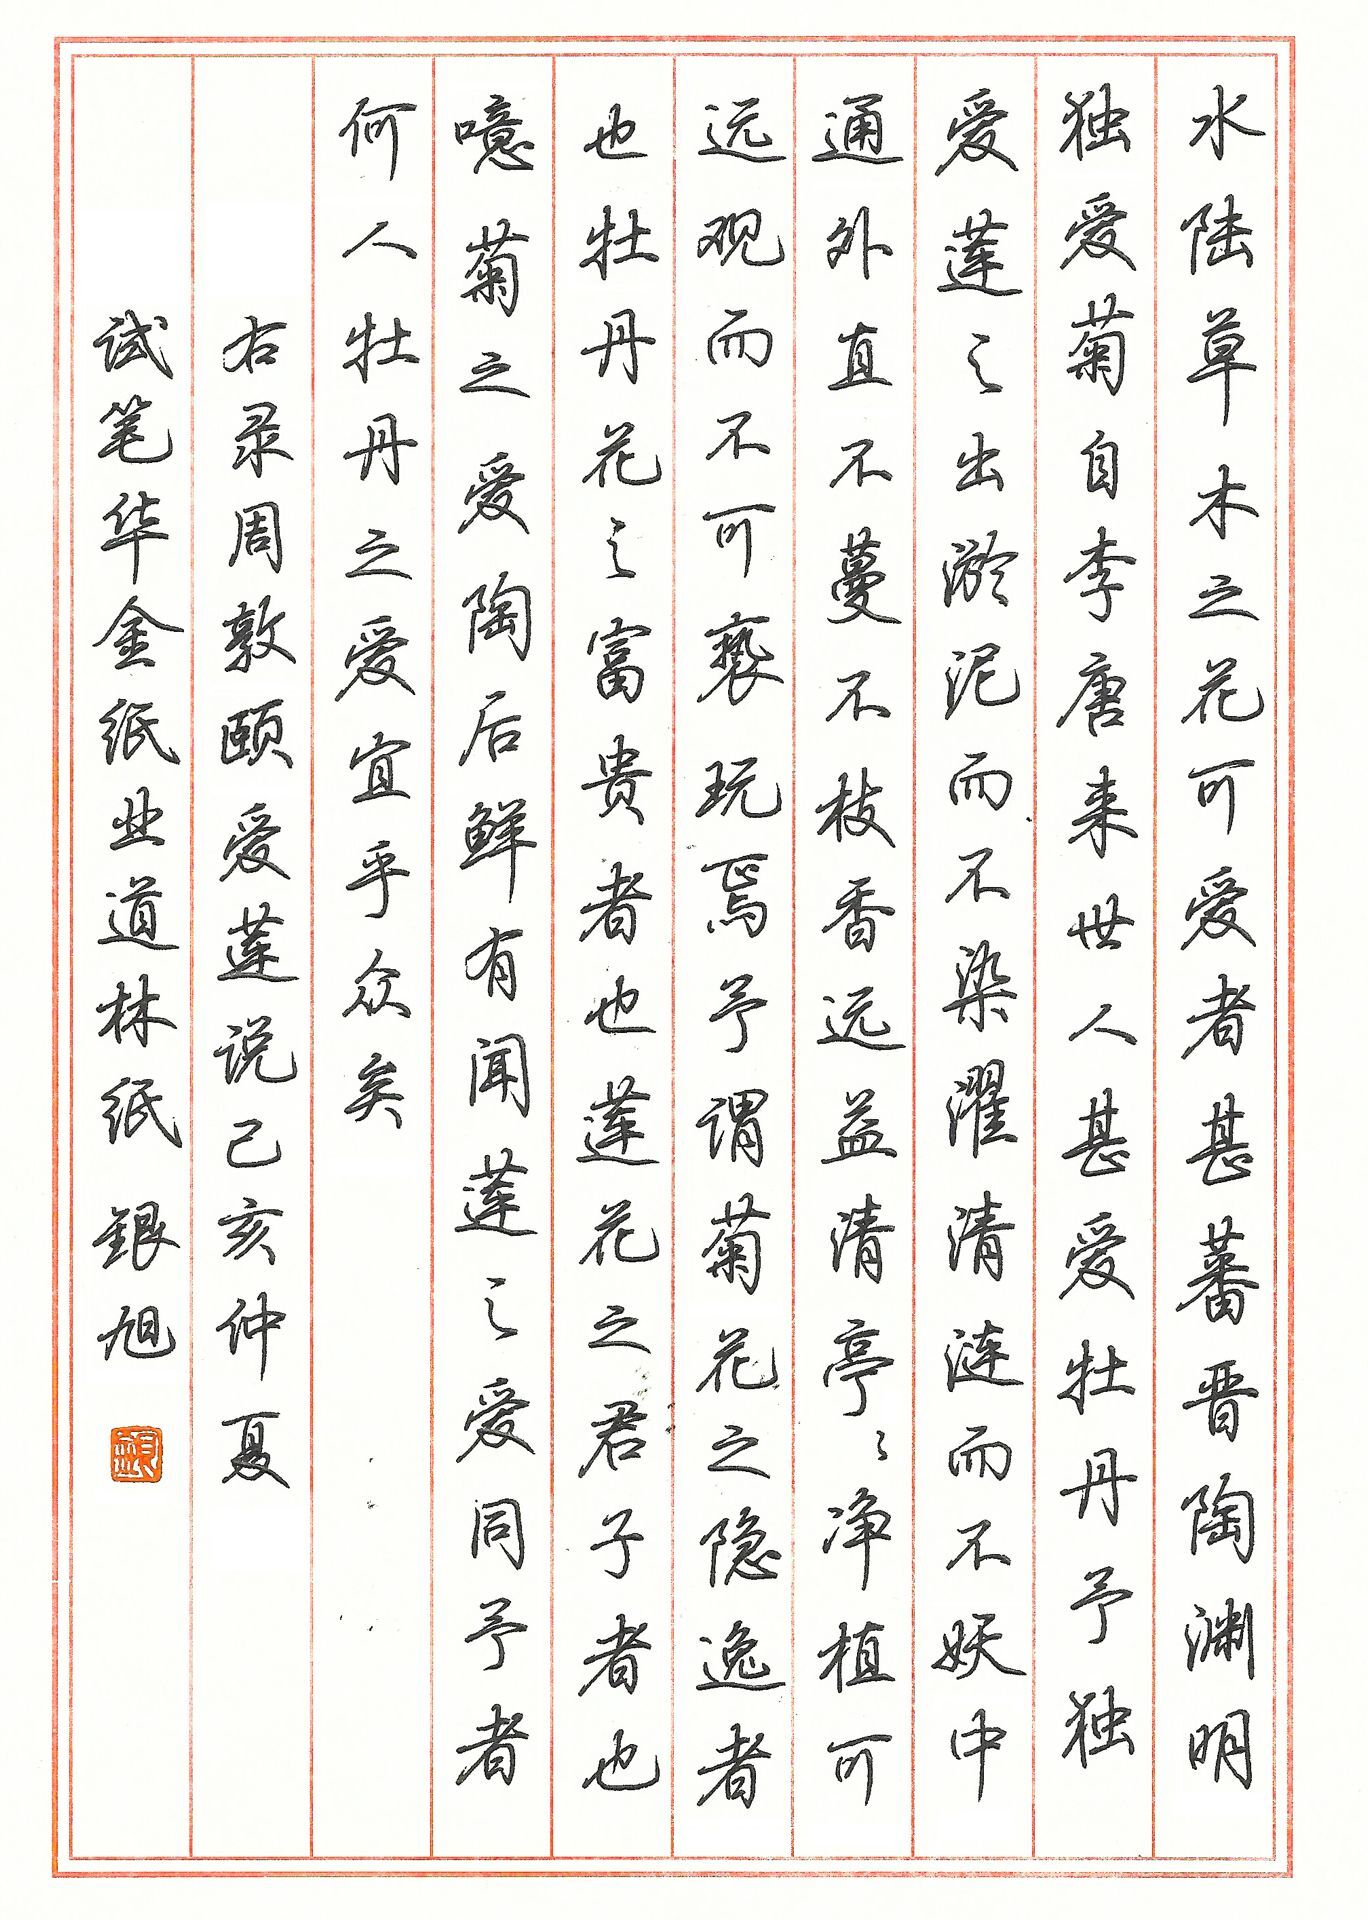 水陆草木之花可爱者甚蕃晋陶渊明
独爱菊自李唐来世人甚爱牡丹予独
爱莲之出淤泥而不染濯清涟而不妖中
通外直不蔓不枝香远益清亭〻净植可
远观而不可亵玩焉予谓菊花之隐逸者
也牡丹花之富贵者也莲花之君子者也
噫菊之爱陶后鲜有闻莲之爱同予者
何人牡丹之爱宜乎众矣
右录周敦颐爱莲说己亥仲夏
试笔华金纸业道林纸 银旭